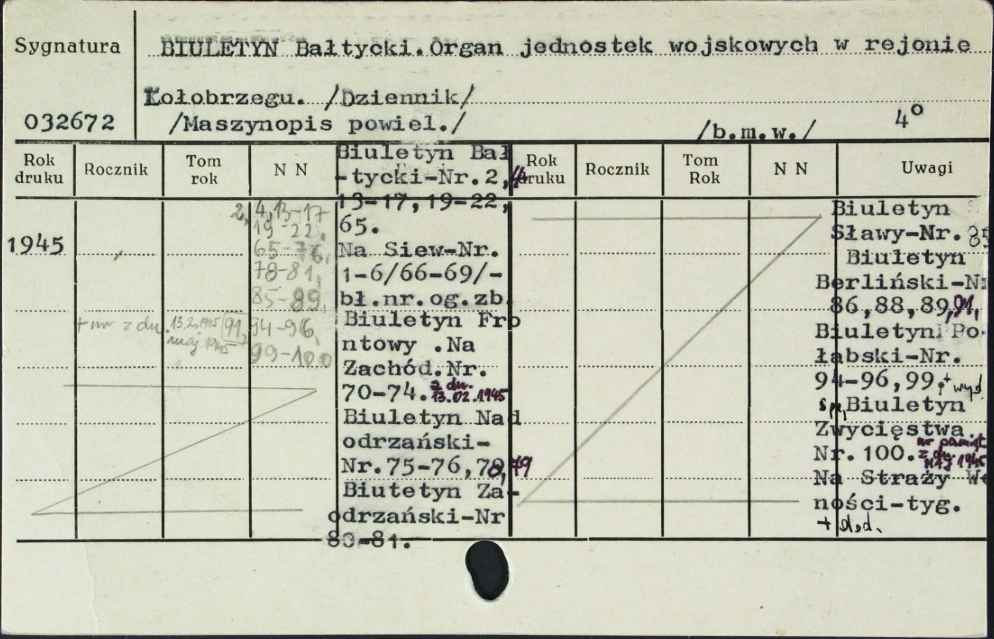 Sygnatura
BIULETYN Bałtycki.Organ jednostek wojskowych w rejonie
Kołobrzegu. /Dziennik/
032672
/Maszynopis powiel./
/b.m.w./
4°
Rok druku
Rocznik
Tom rok
N N
Rok druku
Rocznik
Tom Rok
N N
Uwagi
1945
2, 4, 13-17
19-22,
65-76,
78-81,
85-89,
+ nr z dn. 13.2.1945 91, 94-96,
maj 1945
99-100
Biuletyn Bał
-tycki-Nr.2,4
13-17,19-22,
65.
Na Siew-Nr.
1-6/66-69/-
bł.nr.og.zb.
Biuletyn Fro
ntowy .Na
Zachód.Nr.
70-74. z dn. 13.02.1945
Biuletyn Nad
odrzański-
Nr.75-76,78,79
Biutetyn Za-
odrzański-Nr
80-81.
Biuletyn
Sławy-Nr. 85
Biuletyn
Berliński-N
86,88,89,91,
Biuletyn Po-
łabski-Nr.
94-96,99. + wyd.
sp. Biuletyn
Zwycięstwa.
Nr.100. nr pamiąt.
z dn. maj 1945
Na Straży W
ności-tyg.
+ d.d.